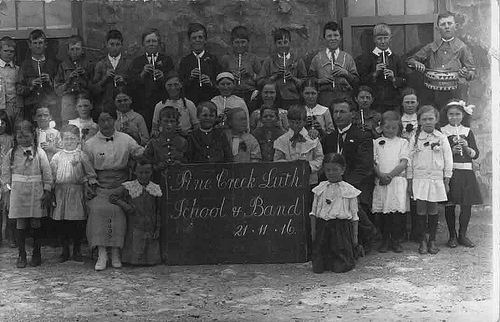 Pine Creek Luth
School & Band
21·11·16.